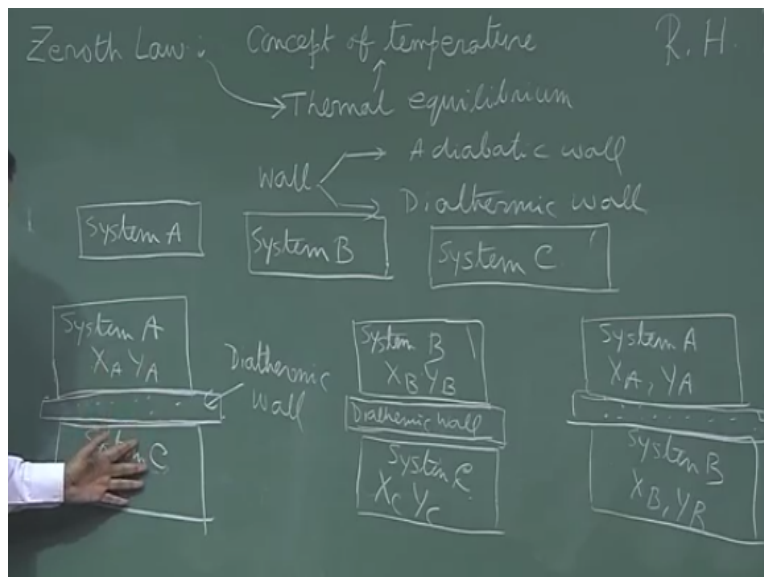 Zeroth Law: Concept of temperature R.H.
Thermal equilibrium
Wall
Adiabatic wall
Diathermic wall
System A
System B
System C
System A
X_A Y_A
Diathermic
wall
System C
System B
X_B Y_B
Diathermic wall
System C
X_C Y_C
System A
X_A, Y_A
System B
X_B, Y_B